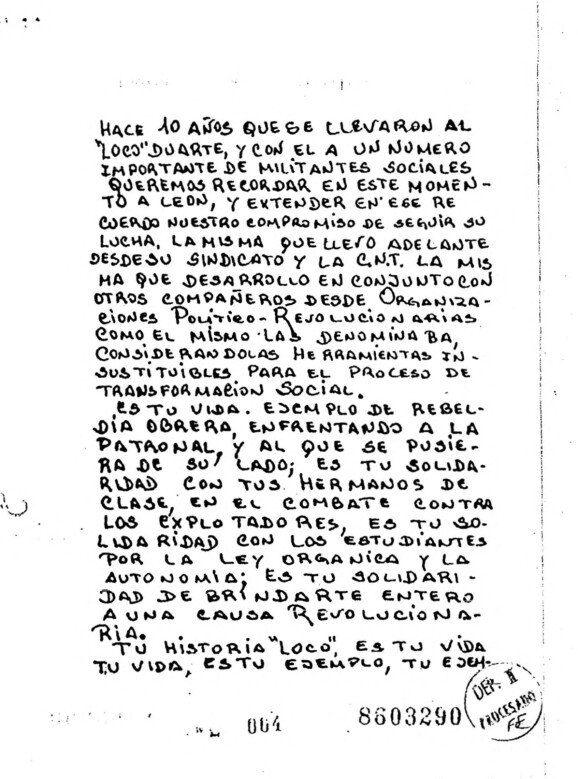 HACE 10 AÑOS QUE SE LLEVARON AL
"LOCO" DUARTE, Y CON EL A UN NUMERO
IMPORTANTE DE MILITANTES SOCIALES
QUEREMOS RECORDAR EN ESTE MOMEN-
TO A LEON, Y EXTENDER EN ESE RE
CUERDO NUESTRO COMPROMISO DE SEGUIR SU
LUCHA, LA MISMA QUE LLEVO ADELANTE
DESDE SU SINDICATO Y LA C.N.T. LA MIS
MA QUE DESARROLLO EN CONJUNTO CON
OTROS COMPAÑEROS DESDE ORGANIZA-
CIONES POLITICO-REVOLUCIONARIAS
COMO EL MISMO LAS DENOMINABA,
CONSIDERANDOLAS HERRAMIENTAS IN-
SUSTITUIBLES PARA EL PROCESO DE
TRANSFORMACION SOCIAL.
ES TU VIDA. EJEMPLO DE REBEL-
DÍA OBRERA, ENFRENTANDO A LA
PATRONAL, Y AL QUE SE PUSIE-
RA DE SU LADO; ES TU SOLIDA-
RIDAD CON TUS HERMANOS DE
CLASE, EN EL COMBATE CONTRA
LOS EXPLOTADORES, ES TU SO-
LIDARIDAD CON LOS ESTUDIANTES
POR LA LEY ORGANICA Y LA
AUTONOMÍA; ES TU SOLIDARI-
DAD DE BRINDARTE ENTERO
A UNA CAUSA REVOLUCIONA-
RIA.
TU HISTORIA "LOCO", ES TU VIDA
TU VIDA, ES TU EJEMPLO, TU EJEM-
004 8603290
DEP. II
PROCESADO
FE